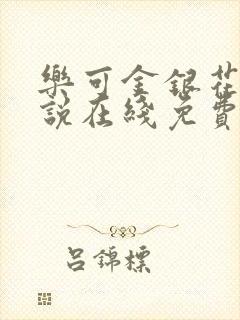 樂可金銀花
說在綫免費
呂錦標